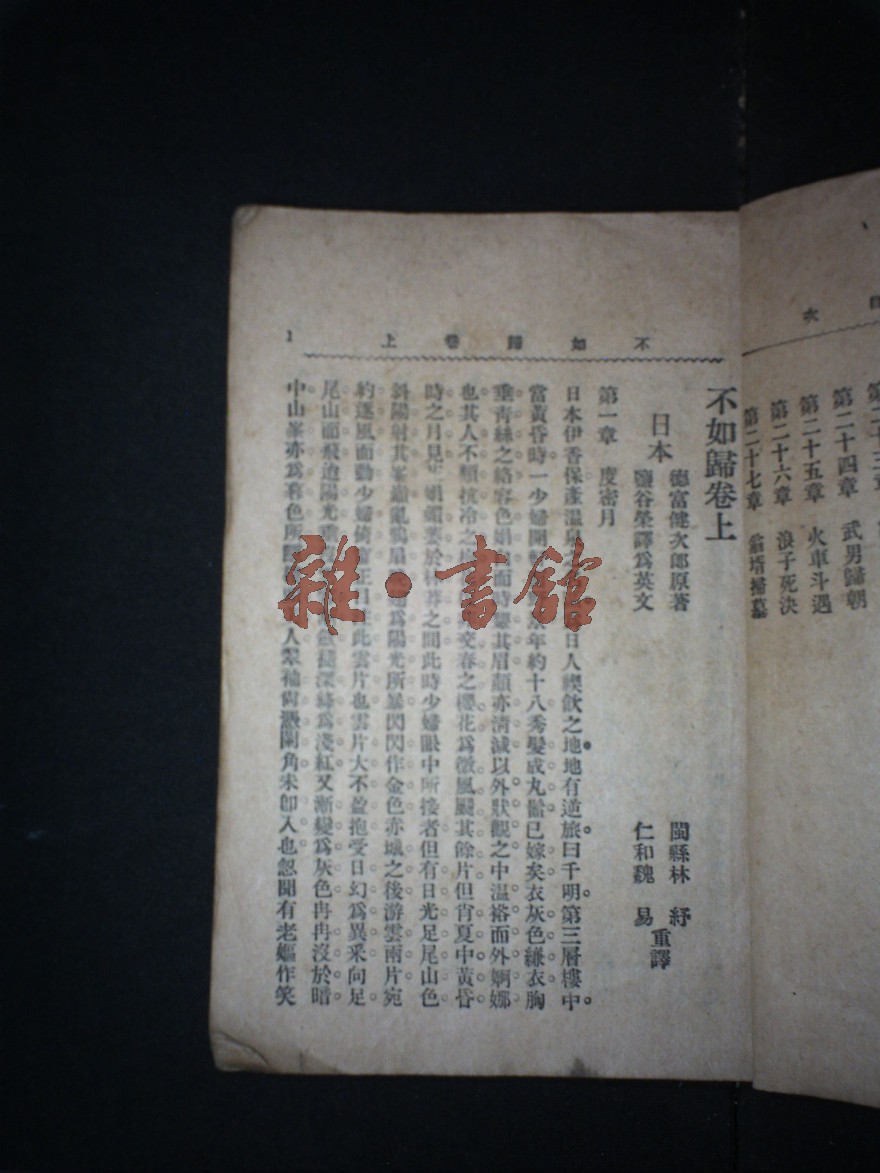 目次
第二十三章
第二十四章　武男歸朝
第二十五章　火車斗遇
第二十六章　浪子死決
第二十七章　翁壻掃墓
不如歸卷上
1
不如歸卷上
日本　德富健次郎原著
鹽谷榮譯爲英文
閩縣林　紓
仁和魏　易
重譯
第一章　度密月
日本伊香保產溫泉之　日人禊飮之地地有逆旅曰千明第三層樓中
當黃昏時一少婦開　年約十八秀髮成丸髷已嫁矣衣灰色縑衣胸
垂靑絲之絡容色娟　而　其眉顰亦淸減以外狀觀之中溫裕而外婀娜
也其人不類抗冷之　交春之櫻花爲微風颺其餘片但肖夏中黃昏
時之月見　娟媚　於　之間此時少婦眼中所接者但有日光足尾山色
斜陽射其峯巓亂鴉　爲陽光所暴閃閃作金色赤城之後游雲兩片宛
約逐風而動少婦倚　此雲片也雲片大不盈抱受日幻爲異采向足
尾山而飛迨陽光　褪深絳爲淺紅又漸變爲灰色冉冉沒於暗
中山峯亦爲暮色所　人翠袖尙憑闌角未卽入也忽聞有老嫗作笑
雜·書館